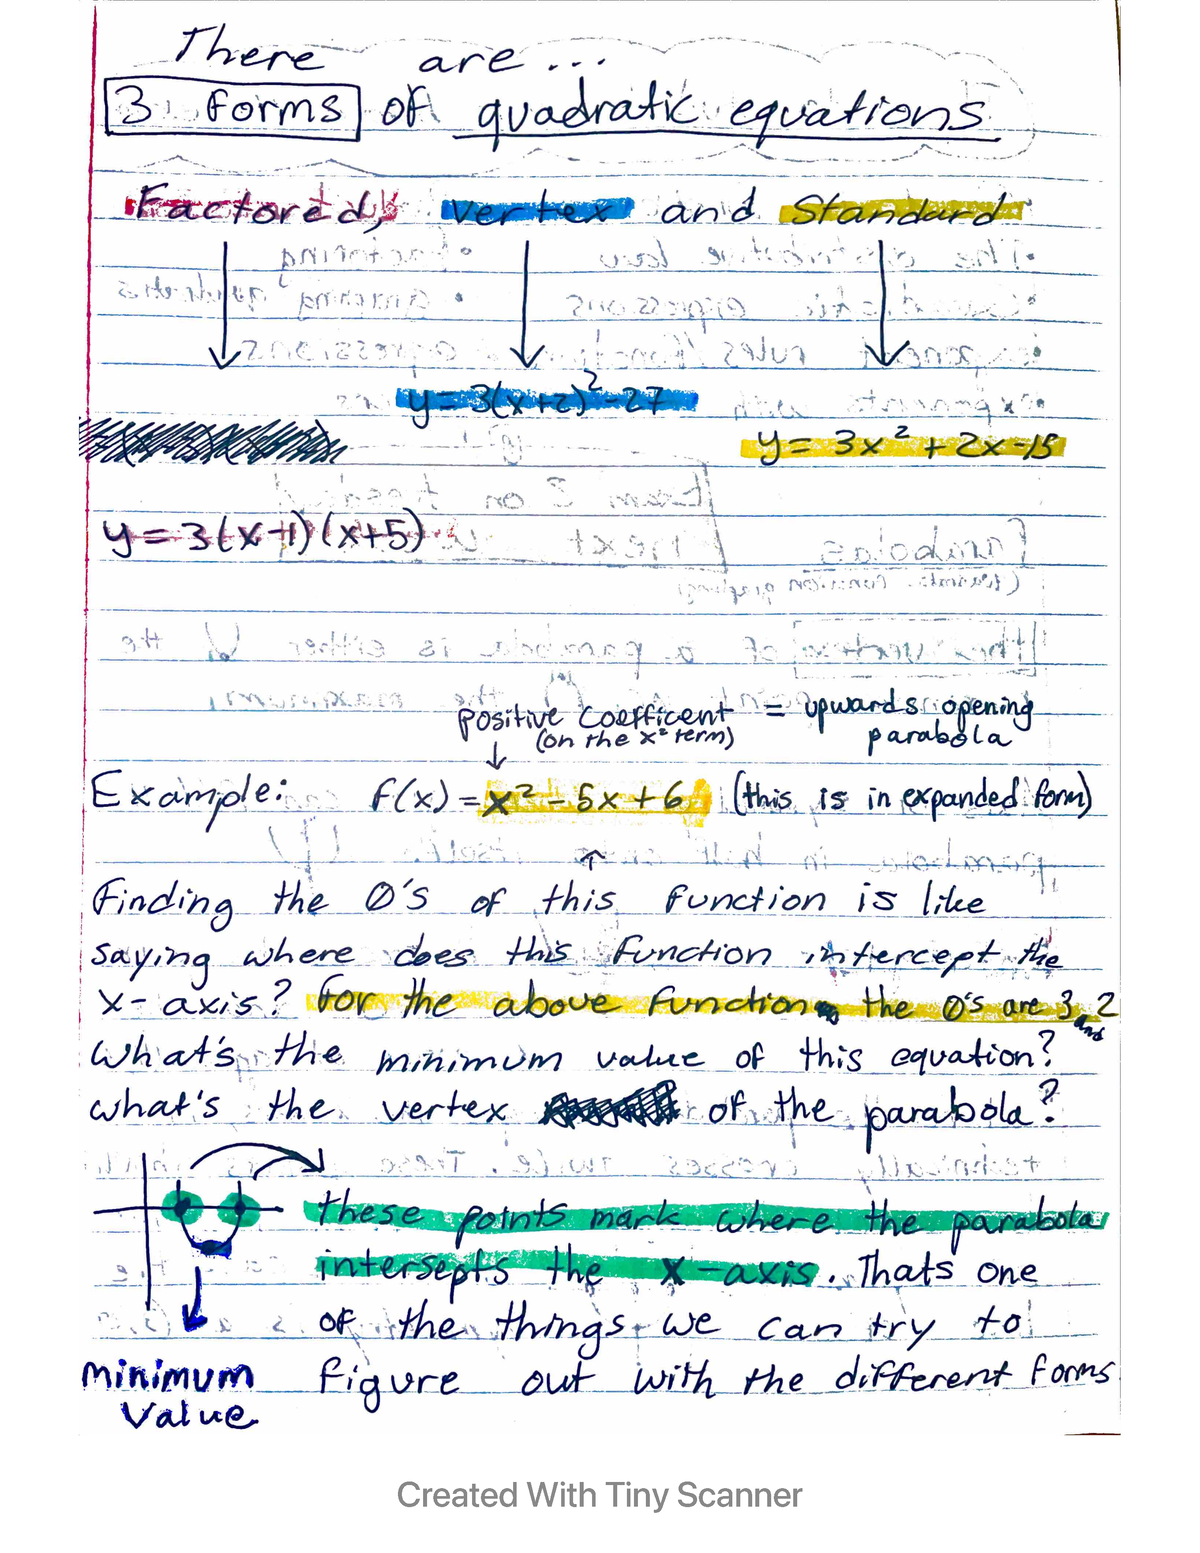 There are...
3 forms of quadratic equations
Factored, Vertex and Standard
y = 3(x+2)² -27
y = 3x² + 2x -15
y = 3(x-1)(x+5)
positive Coefficent = upwards opening
(on the x² term) parabola
Example: f(x) = x² - 5x + 6 (this is in expanded form)
Finding the 0's of this function is like
saying where does this function intercept the
x-axis? For the above function the 0's are 3 and 2
What's the minimum value of this equation?
what's the vertex of the parabola?
these points mark where the parabola
intersepts the x-axis. Thats one
of the things we can try to
figure out with the different forms
minimum
Value
Created With Tiny Scanner